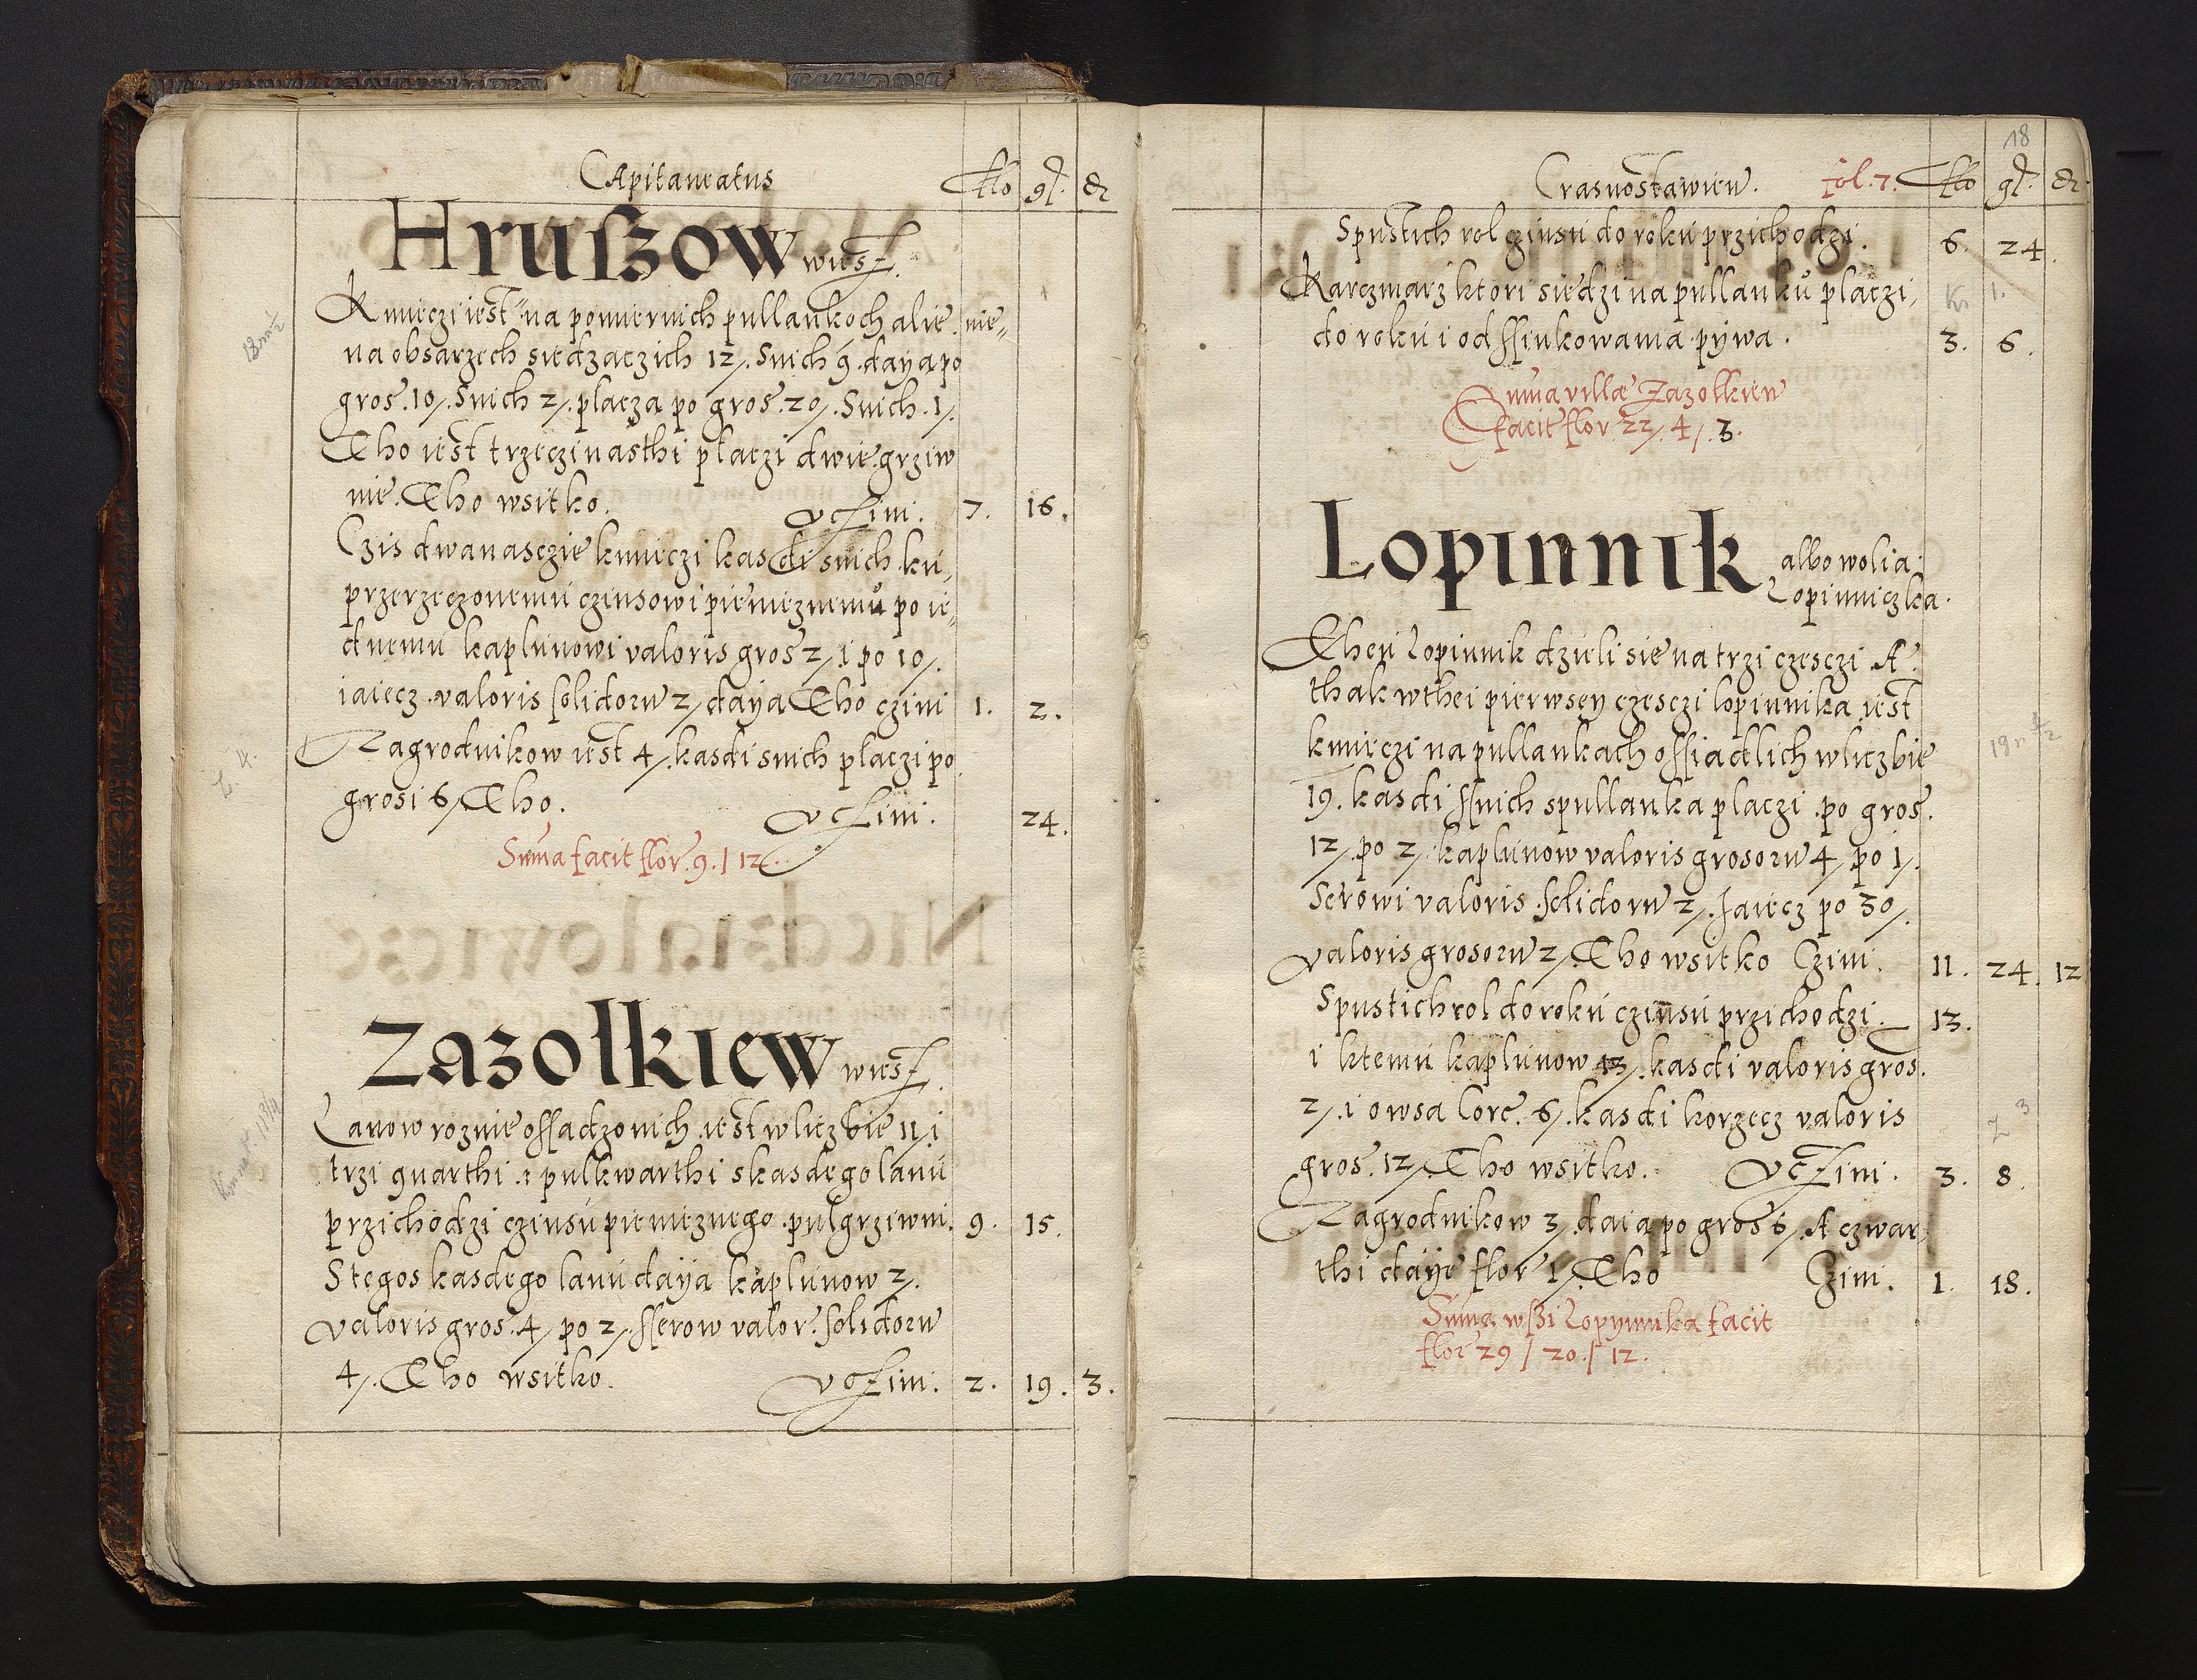 Capitaneatus flo gr. dr
Hruszow wiesz.
Kmieczi iest na pomiernich pullankoch alie nie-
na obsarzech siedzaczich 12/. Snich 9. daya po
gros. 10/. Snich 2/. placza po gros. 20/. Snich. 1/.
Tho iest trzeczinasthi placzi dwie grziw
nie. Tho wsitko. vczini. 7. 16.
Czis dwanasczie kmieczi kasdi snich ku
przerzeczonemu czinsowi pienieznemu po ie-
dnemu kaplunowi valoris gros 2/ i po 10/.
iaiecz valoris solidorum 2/ daya Tho czini 1. 2.
Zagrodnikow iest 4/. kasdi snich placzi po
grosi 6/ Tho. vczini. 24.
Suma facit flor. 9. / 12.
Zazolkiew wiesz.
Lanow roznie ossadzonich iest wliczbie 11/ i
trzi quarthi i pulkwarthi skasdego lanu
przichodzi czinsu pienieznego pulgrziwni. 9. 15.
Stegos kasdego lanu daya kaplunow 2/.
valoris gros. 4/ po 2/. sserow valor. solidorum
4/. Tho wsitko. vczini. 2. 19. 3.
18
Crasnostawien. fol. 7. flo gr. dr.
Spustich rol czinsu do roku przichodzi. 6. 24.
Karczmarz ktori siedzi na pullanku placzi K. 1.
do roku i od ssinkowania pywa. 3. 6.
Summa villae Zazolkiew
facit flor. 22/. 4/. 3.
Lopinnik albo wolia
Lopinniczka.
Then Lopinnik dzieli sie na trzi czesczi A
thak wthei pierwsey czesczi lopinnika iest
kmieczi na pullankach ossiadlich wliczbie
19. kasdi ssnich spullanka placzi po gros.
12/. po 2/. kaplunow valoris grosorum 4/ po 1/.
Serowi valoris solidorum 2/. Jaiecz po 30/.
valoris grosorum 2/. Tho wsitko Czini. 11. 24. 12
Spustich rol do roku czinsu przichodzi. 13.
i ktemu kaplunow 13/. kasdi valoris gros.
2/. i owsa Core. 6/. kasdi korzecz valoris
gros. 12/. Tho wsitko. vczini. 3. 8.
Zagrodnikow 3/. daia po gros 6/. A czwar
thi daye flor 1/. Tho Czini. 1. 18.
Suma wssi Lopynnika facit
flor 29 / 20. / 12.